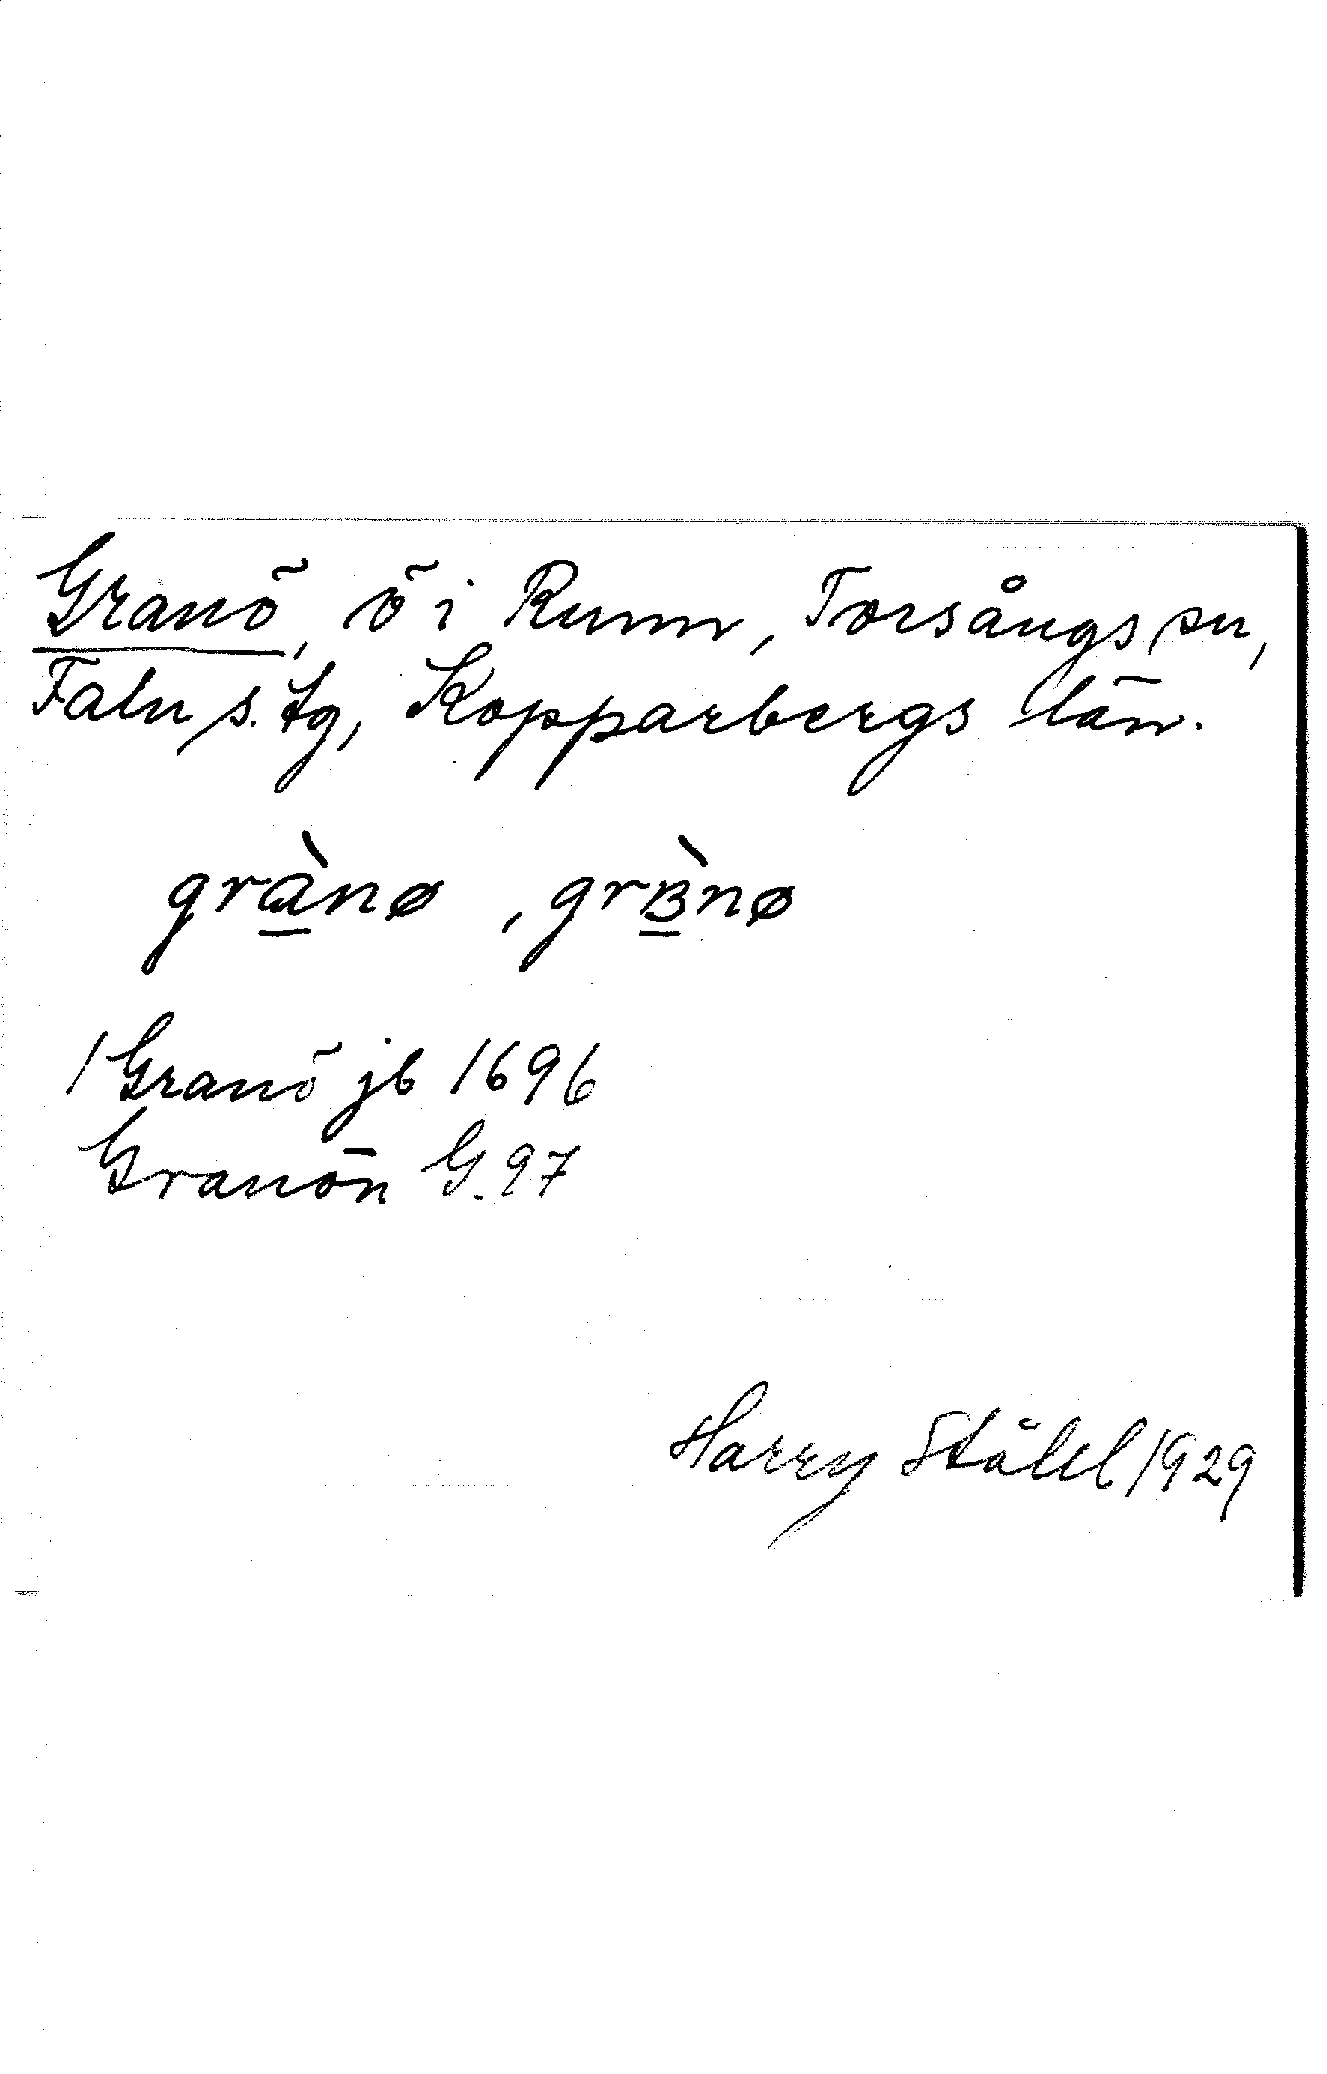 Granö, ö i Runn, Torsångs sn,
Falu s. tg, Kopparbergs län.
grànø, grɞ̀nø
1 Granö jb 1696
Granön G. 97
Harry Ståhl 1929